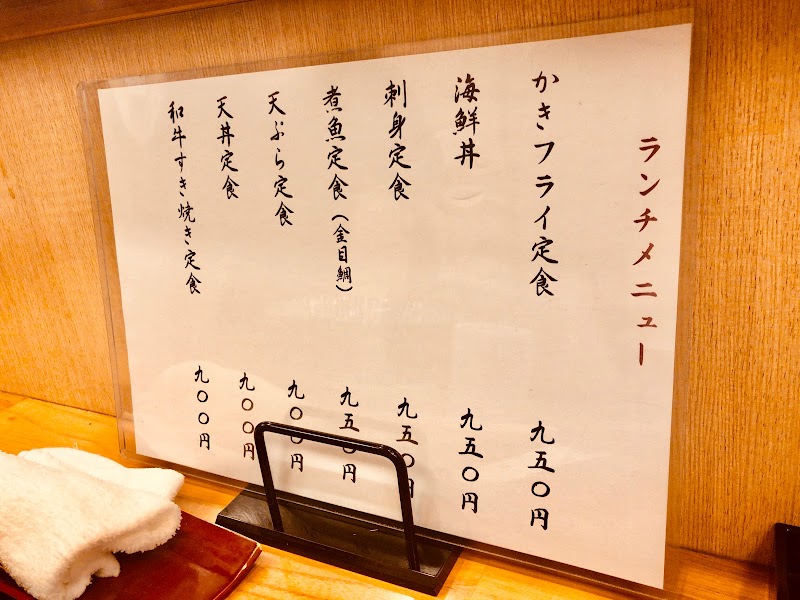 ランチメニュー
かきフライ定食 九五〇円
海鮮丼 九五〇円
刺身定食 九五〇円
煮魚定食（金目鯛） 九五〇円
天ぷら定食 九〇〇円
天丼定食 九〇〇円
和牛すき焼き定食 九〇〇円